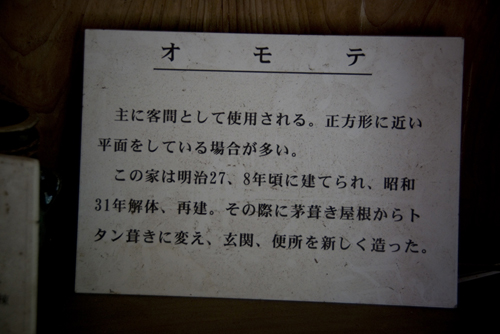 オモテ
主に客間として使用される。正方形に近い
平面をしている場合が多い。
この家は明治27、8年頃に建てられ、昭和
31年解体、再建。その際に茅葺き屋根からト
タン葺きに変え、玄関、便所を新しく造った。